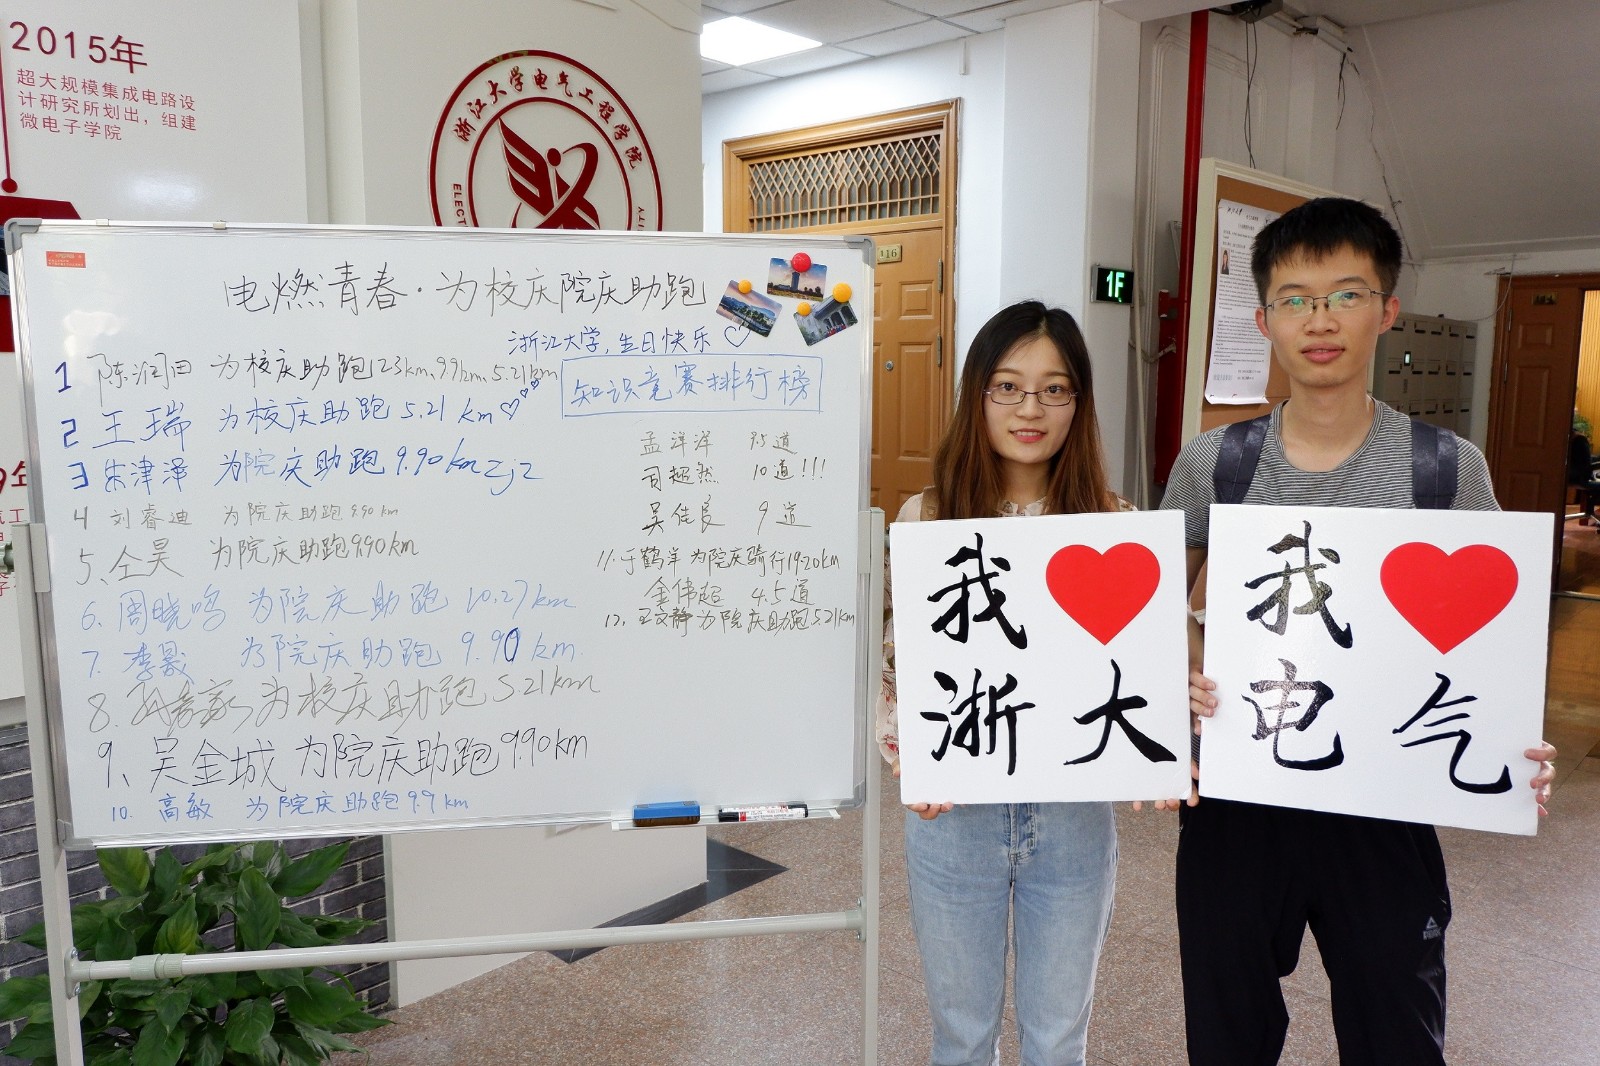 2015年
超大规模集成电路设
计研究所划出，组建
微电子学院
浙江大学电气工程学院
ELECT
116
1F
电燃青春·为校庆院庆助跑
浙江大学,生日快乐♡
1 陈润田 为校庆助跑23km、99km、5.21km
2 王瑞 为校庆助跑5.21 km♡
3 朱津泽 为院庆助跑9.90km zjz
4 刘睿迪 为院庆助跑9.90 km
5、仝昊 为院庆助跑9.90km
6.周晓鸣 为院庆助跑 10.27km
7.李晟 为院庆助跑 9.90km.
8. 为校庆助跑5.21km
9、吴金城 为院庆助跑9.90km
10.高敏 为院庆助跑9.9km
知识竞赛排行榜
孟洋洋 9.5道
司超然 10道!!!
吴佳良 9道
11.于鹤洋为院庆骑行19.20km
金伟超 4.5道
12.王文静为院庆助跑5.21km
我♥
浙大
我♥
电气